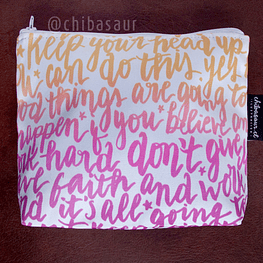 @chibasaur
keep your head up
can do this yes
good things are going to
happen if you believe
work hard don't give
have faith and work
and it's all going
chibasaur.et